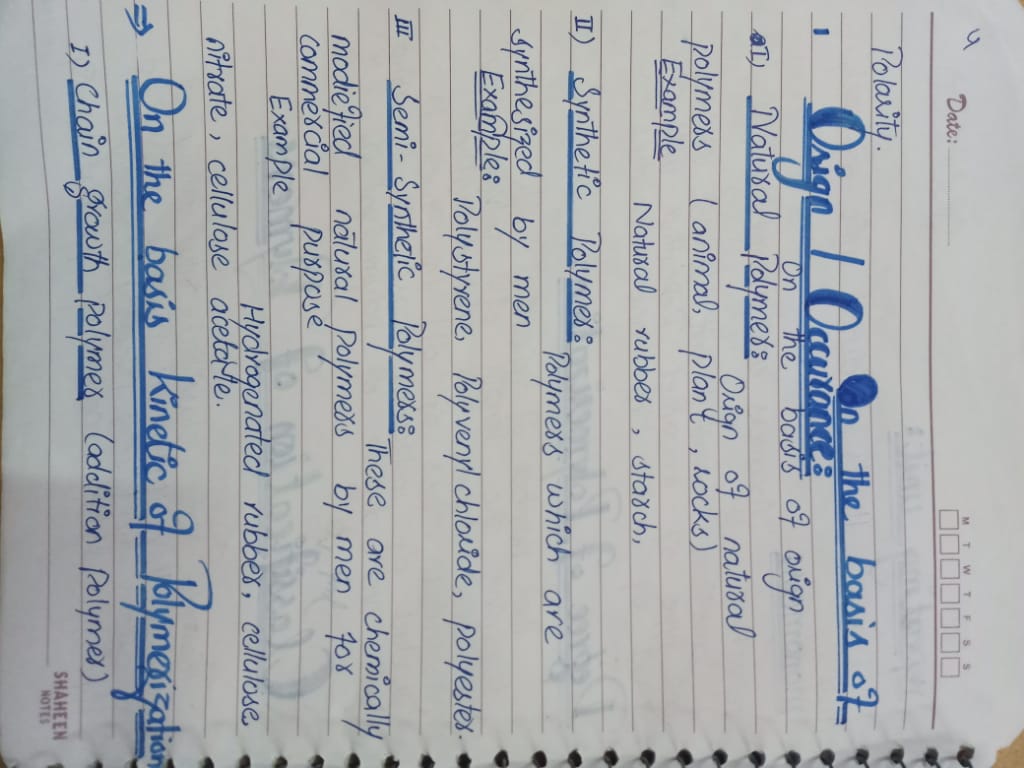 4
Date:
M T W T F S S
Polarity.
1 On the basis of
Origin / Occurance:
On the basis of origin
I) Natural Polymer: Origin of natural
polymers (animal, plant, rocks)
Example
Natural rubber, starsh,
II) Synthetic Polymer: Polymers which are
synthesized by men
Example: Polystyrene, Polyvenyl chloride, polyester.
III Semi-Synthetic Polymers: These are chemically
modiefied natural Polymers by men for
commercial purpose
Example
Hydrogenated rubber, cellulose
nitrate, cellulose acetate.
⇒ On the basis kinetic of Polymerization
I) Chain growth polymer (addition Polymer)
SHAHEEN
NOTES